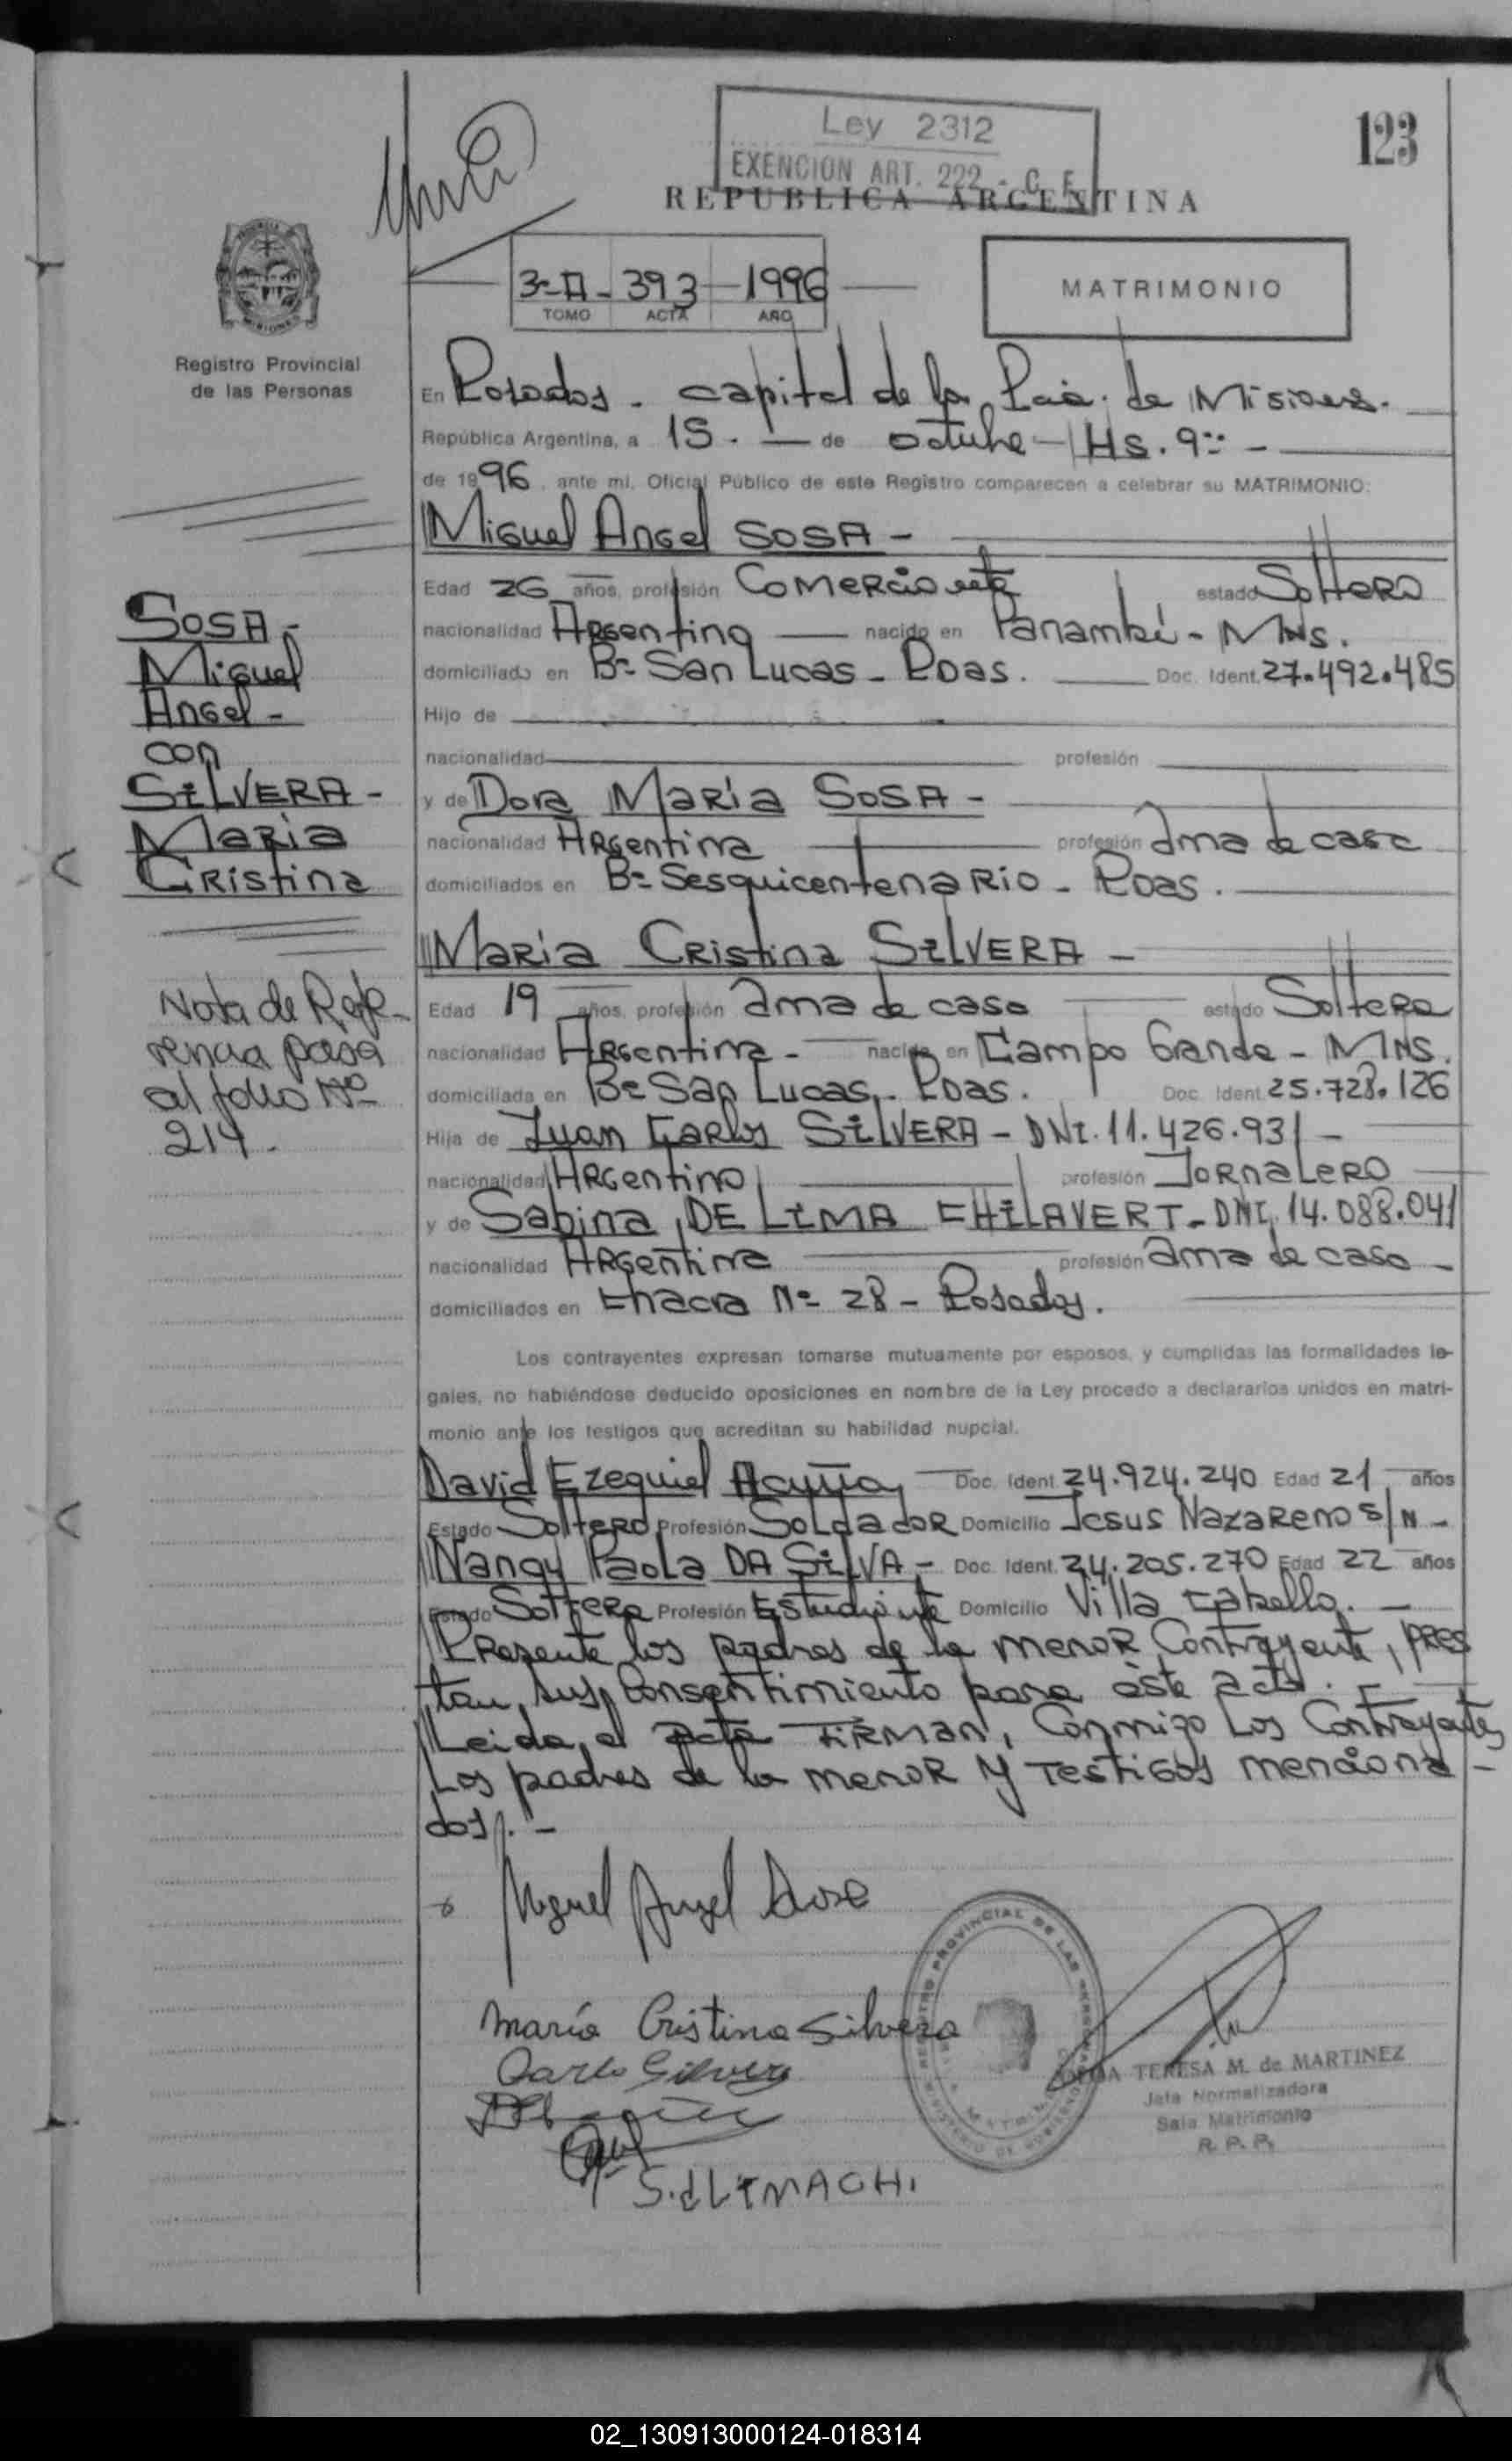 Ley 2312
EXENCION ART. 222 - C. F.
123
REPUBLICA ARGENTINA
3º-A- 393 - 1996
TOMO ACTA AÑO
MATRIMONIO
PROVINCIA DE MISIONES
Registro Provincial
de las Personas
En Posadas. capital de la Pcia. de Misiones.
República Argentina, a 15. — de octubre - Hs. 9:: -
de 1996, ante mi, Oficial Público de este Registro comparecen a celebrar su MATRIMONIO:
Miguel Angel SOSA -
Edad 26 años, profesión Comerciante estado Soltero
nacionalidad Argentino — nacido en Panambí - Mns.
domiciliado en Bº San Lucas - Pdas. — Doc. Ident. 27.492.485
Hijo de —
nacionalidad — profesión —
y de Dora María SOSA -
nacionalidad Argentina profesión ama de casa
domiciliados en Bº Sesquicentenario - Pdas.
María Cristina SILVERA -
Edad 19 años, profesión ama de casa estado Soltera
nacionalidad Argentina - nacida en Campo Grande - Mns.
domiciliada en Bº San Lucas - Pdas. Doc. Ident. 25.728.126
Hija de Juan Carlos SILVERA - DNI. 11.426.931 -
nacionalidad Argentino profesión Jornalero
y de Sabina DE LIMA CHILAVERT - DNI. 14.088.041
nacionalidad Argentina profesión ama de casa -
domiciliados en Chacra Nº 28 - Posadas.
Los contrayentes expresan tomarse mutuamente por esposos, y cumplidas las formalidades le-
gales, no habiéndose deducido oposiciones en nombre de la Ley procedo a declararlos unidos en matri-
monio ante los testigos que acreditan su habilidad nupcial.
David Ezequiel Acuña — Doc. Ident. 24.924.240 Edad 21 años
Estado Soltero Profesión Soldador Domicilio Jesus Nazareno S/N -
Nancy Paola DA SILVA - Doc. Ident. 24.205.270 Edad 22 años
Estado Soltera Profesión Estudiante Domicilio Villa Cabello. -
Presente los padres de la menor Contrayente, pres
tan sus Consentimiento para éste acto. -
Leida el acta Firman, Conmigo Los Contrayentes
Los padres de la menor y Testigos menciona -
dos. -
SOSA -
Miguel
Angel -
con
SILVERA -
Maria
Cristina
Nota de Refe-
rencia pasa
al folio Nº
214.
Miguel Angel Sosa
María Cristina Silvera
Carlos Silvera
S. d LIMACHI
REGISTRO PROVINCIAL DE LAS PERSONAS
MINISTERIO DE GOBIERNO
TERESA M. de MARTINEZ
Jefa Normalizadora
Sala Matrimonio
R. P. P.
02_130913000124-018314